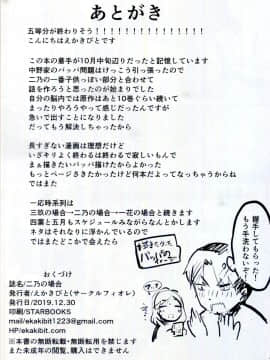 あとがき
五等分が終わりそう!!!!!!!!!!!!!!!
こんにちはえかきびとです
この本の着手が10月中旬辺りだったと記憶しています
中野家のパッパ問題はけっこう引っ張ったので
二乃の一番子供っぽい部分と合わせて
話を作ろうと思ったのが始まりでした
自分の脳内では原作はあと10巻ぐらい続いて
まったりやろうやって感じだったんですが
急いで出すことになりました
だってもう解決しちゃったから
長すぎない漫画は理想だけど
いざキリよく終わるは終わるで寂しいもんで
まぁ描きたいパッパ描けたからよかった
もっとページさきたかったけど何本だよってなっちゃうからね
ではまた
一応時系列は
三玖の場合→二乃の場合→一花の場合と続きます
四葉と五月もスケジュールみながらなんとかします
ネタはそれなりに浮かんでいるので
では来年どこかで会えたら
握手してもらった!
もう手洗わないぞ!
おくづけ
誌名/二乃の場合
発行者/えかきびと(サークルフィオレ)
発行日/2019.12.30
印刷/STARBOOKS
mail/ekakibit1223@gmail.com
HP/ekakibit.com
※本書の無断転載・無断販売を禁じます
また未成年の閲覧、購入はできません